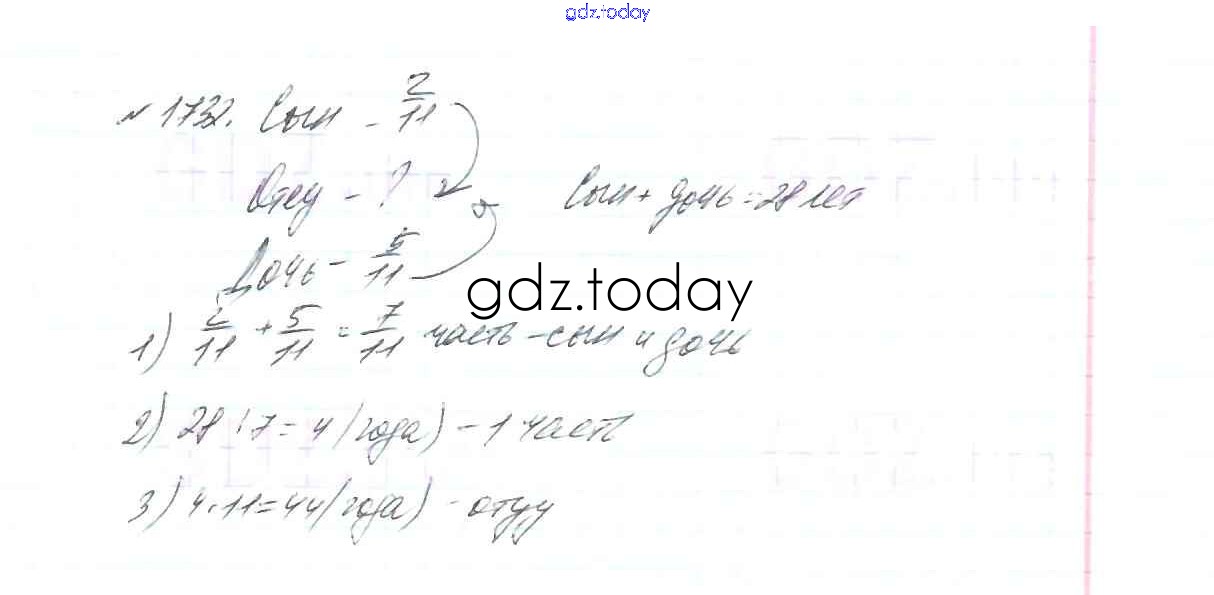 gdz.today
№ 1732. Сын - 2/11
Отец - ? Сын + дочь = 28 лет
Дочь - 5/11
gdz.today
1) 2/11 + 5/11 = 7/11 часть - сын и дочь
2) 28 : 7 = 4 (года) - 1 часть
3) 4 · 11 = 44 (года) - отцу